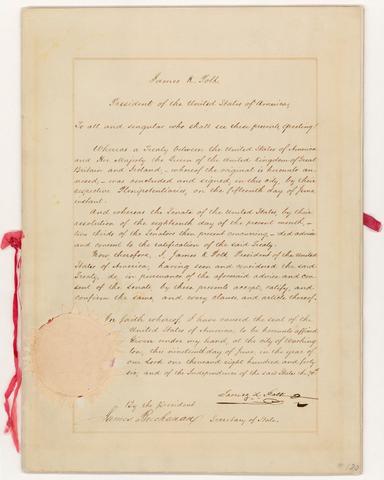 James K. Polk
President of the United States of America,
To all and singular who shall see these presents Greeting!
Whereas a Treaty between the United States of America
and Her Majesty the Queen of the United Kingdom of Great
Britain and Ireland, whereof the original is hereunto an-
nexed, was concluded and signed, in this city, by their
respective Plenipotentiaries, on the fifteenth day of June,
instant.
And whereas the Senate of the United States, by their
resolution of the eighteenth day of the present month, -
two thirds of the Senators then present concurring, - did advise
and consent to the ratification of the said Treaty.
Now therefore, I, James K. Polk President of the United
States of America; having seen and considered the said
Treaty, do, in pursuance of the aforesaid advice and con-
sent of the Senate by these presents accept, ratify, and
confirm the same, and every clause and article thereof.
In faith whereof I have caused the seal of the
United States of America to be hereunto affixed
Given under my hand, at the city of Washing
ton, this nineteenth day of June, in the year of
our Lord one thousand eight hundred and forty
six; and of the Independence of the said States the 70th
James K. Polk
By the President
James Buchanan
Secretary of State.